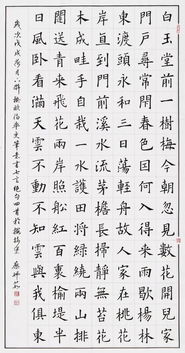 白玉堂前一樹梅今朝忽見數花開兒家
門戶尋常閉春色因何入得來雨歇楊林
東渡頭永和三日蕩輕舟故人家在桃花
岸直到門前溪水流茅檐長掃靜無苔花
木成畦手自栽一水護田將綠繞兩山排
闥送青來飛花兩岸照船紅百里榆堤半
日風卧看滿天雲不動不知雲與我俱東
歲次戊戌荷月書七言絕句四首於